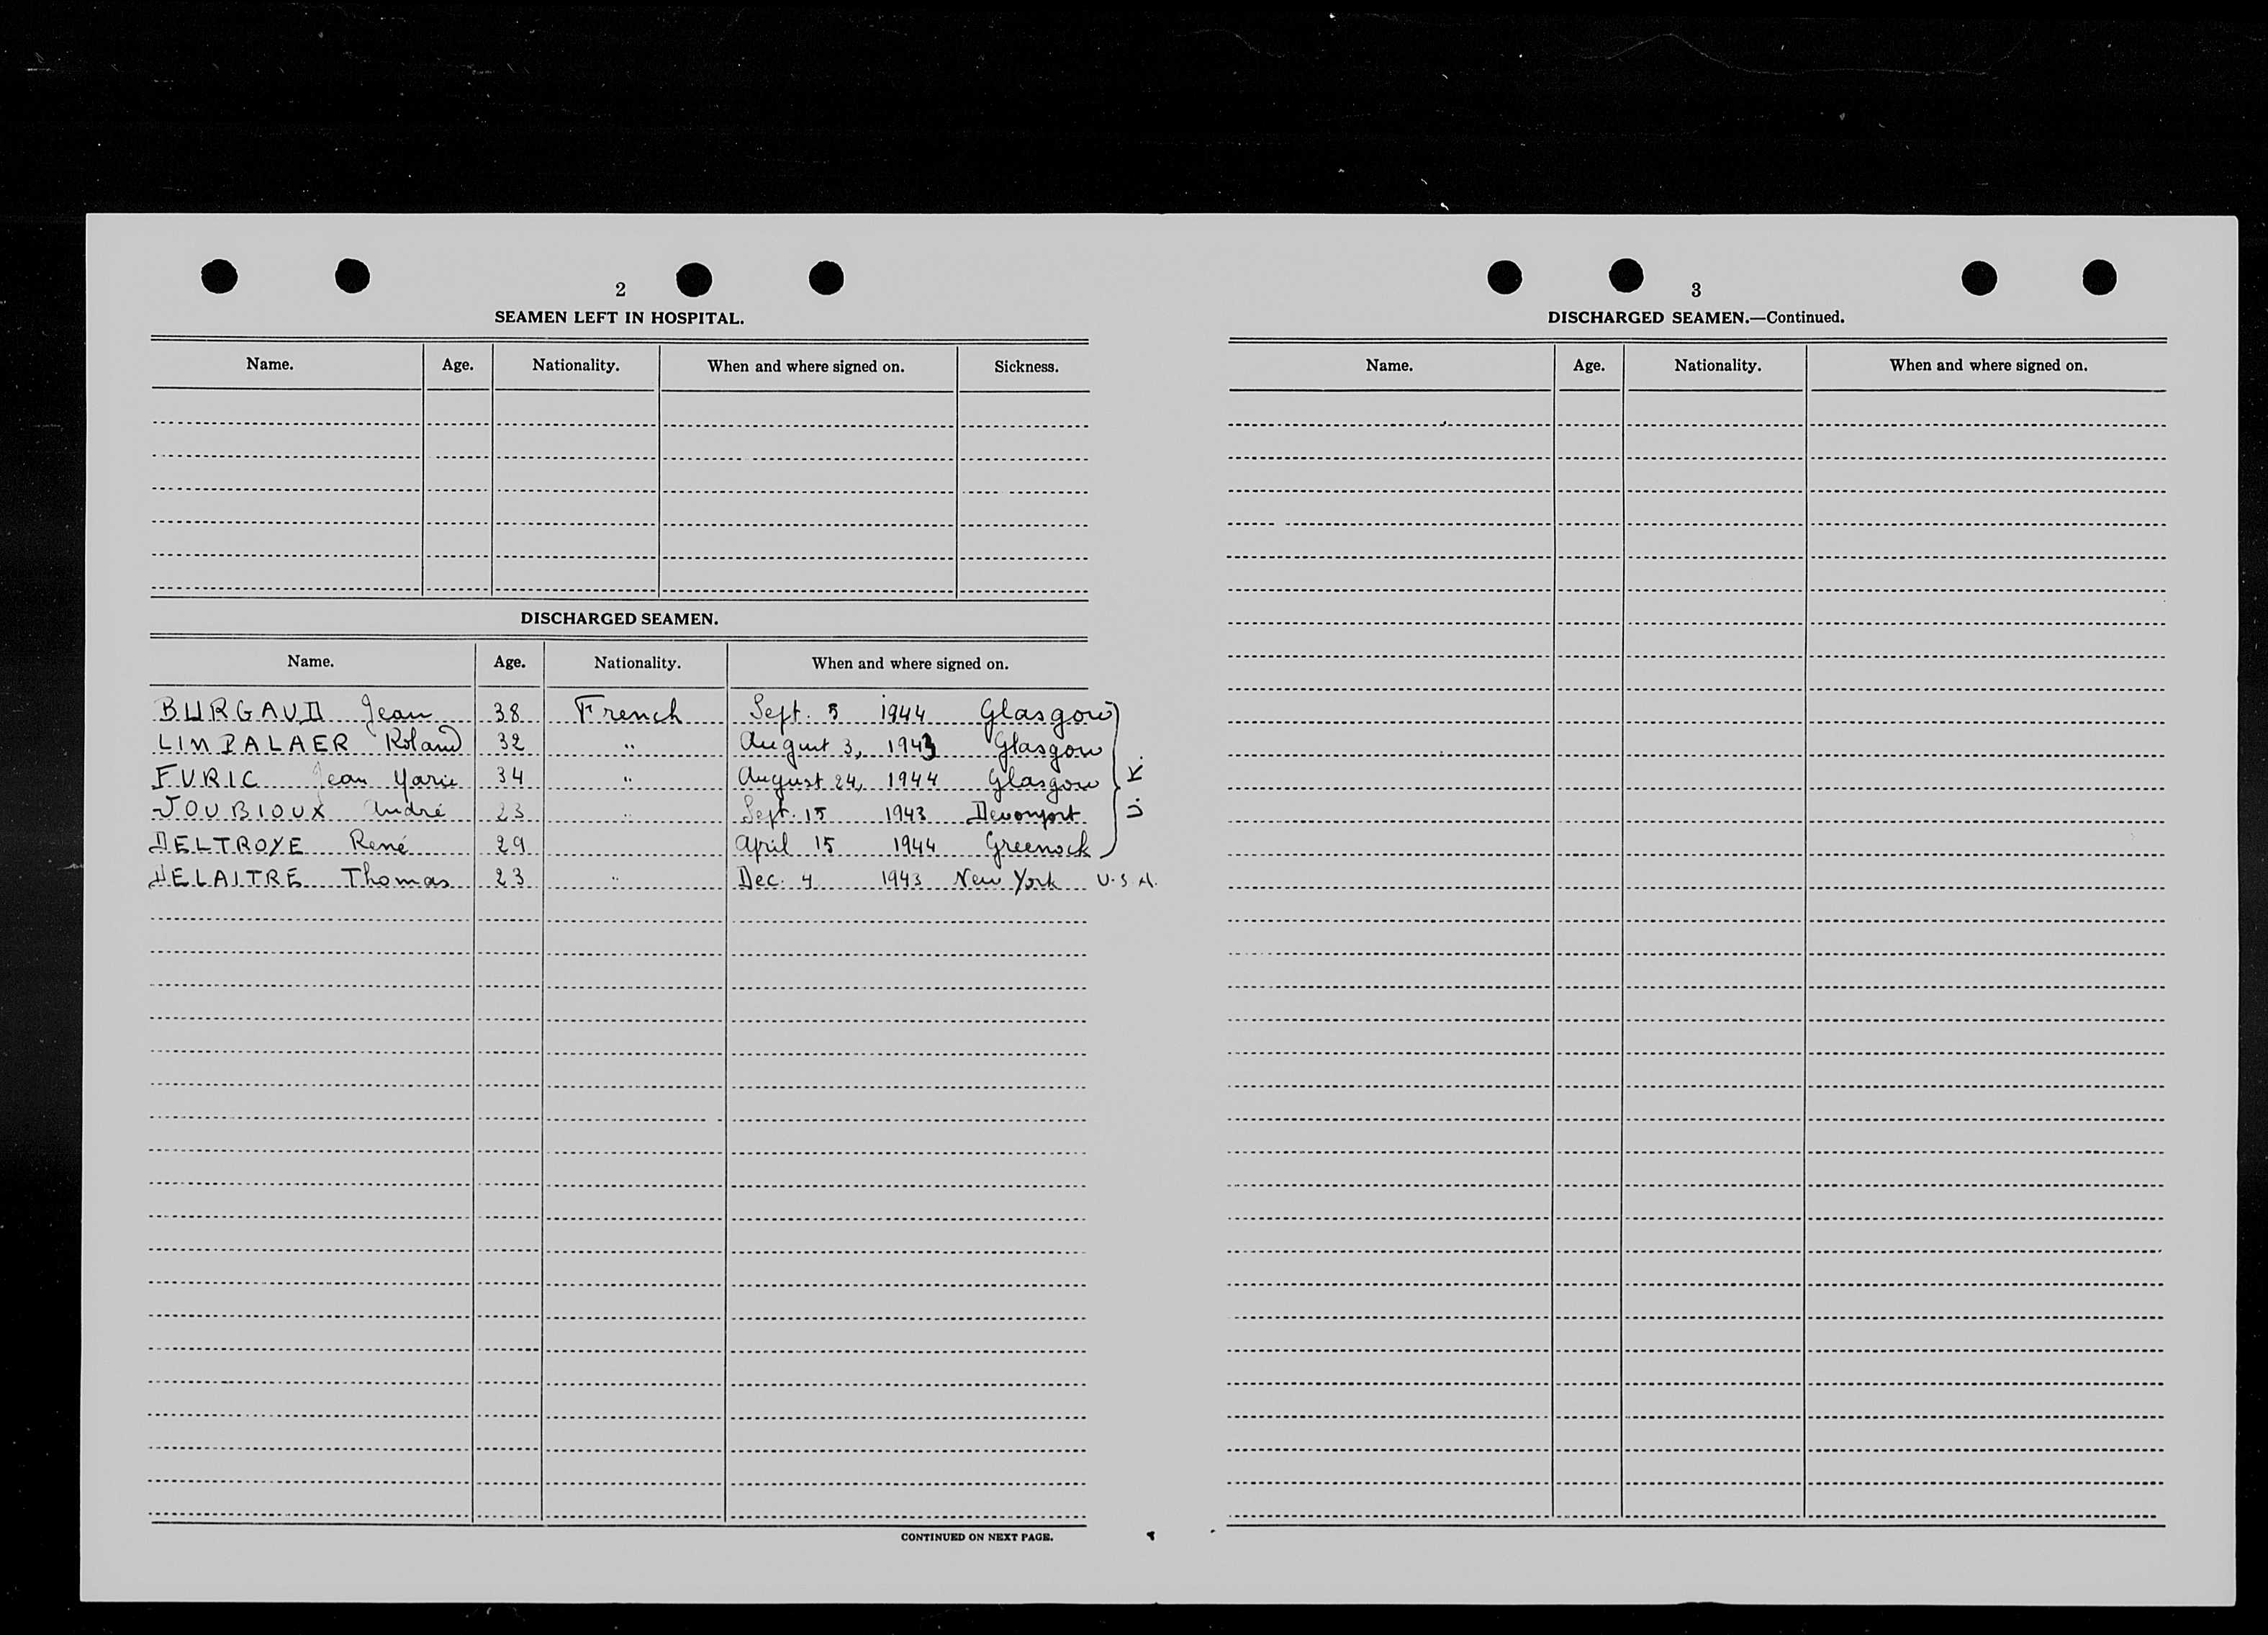 2
SEAMEN LEFT IN HOSPITAL.
Name. Age. Nationality. When and where signed on. Sickness.
DISCHARGED SEAMEN.
Name. Age. Nationality. When and where signed on.
BURGAUD Jean 38 French Sept. 5 1944 Glasgow
LIMPALAER Roland 32 " August 3, 1943 Glasgow
FURIC Jean Marie 34 " August 24, 1944 Glasgow
JOUBIOUX André 23 " Sept. 15 1943 Devonport
DELTROYE René 29 April 15 1944 Greenock
U.K.
DELAITRE Thomas 23 " Dec. 4 1943 New York U.S.A.
CONTINUED ON NEXT PAGE.
3
DISCHARGED SEAMEN.—Continued.
Name. Age. Nationality. When and where signed on.